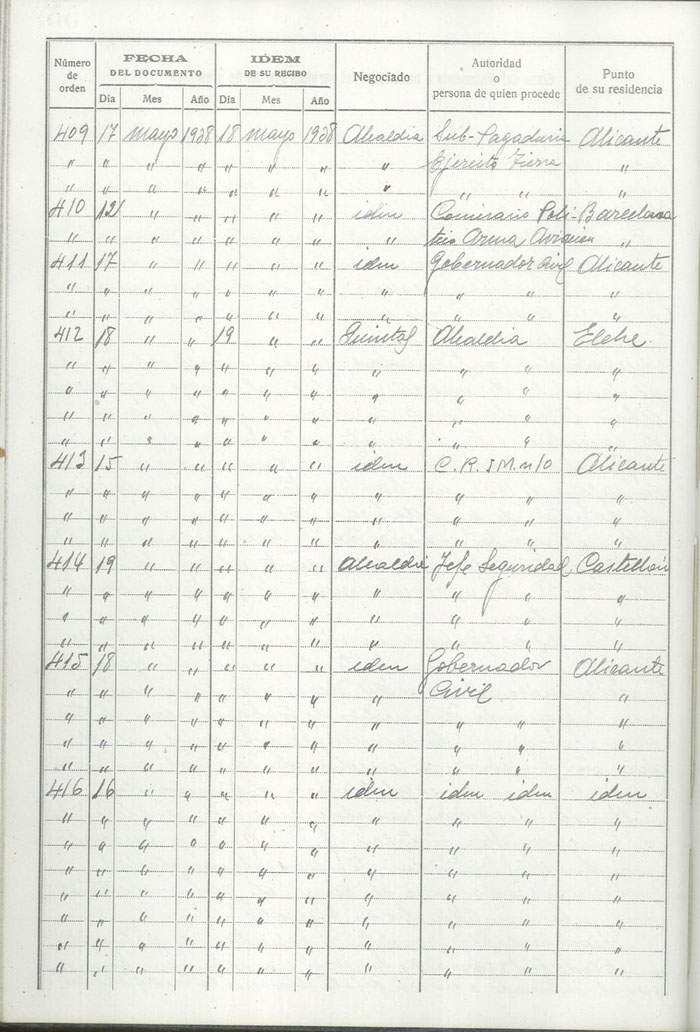 Número de orden FECHA DEL DOCUMENTO IDEM DE SU RECIBO Negociado Autoridad o persona de quien procede Punto de su residencia
Dia Mes Año Dia Mes Año
409 17 mayo 1938 18 mayo 1938 Alcaldia Sub-Pagaduria Alicante
" " " " " " " " Ejercito Tierra "
" " " " " " " " " " "
410 12 " " " " " idem Comisario Poli- Barcelona
" " " " " " " " tico Arma Aviación "
411 17 " " " " " idem Gobernador Civil Alicante
" " " " " " " " " " "
" " " " " " " " " " "
412 18 " " 19 " " Quintas Alcaldia Elche
" " " " " " " " " " "
" " " " " " " " " " "
" " " " " " " " " " "
" " " " " " " " " " "
413 15 " " " " " idem C.R.I M. n/o Alicante
" " " " " " " " " " "
" " " " " " " " " " "
" " " " " " " " " " "
414 19 " " " " " Alcaldia Jefe Seguridad Castellón
" " " " " " " " " " "
" " " " " " " " " " "
" " " " " " " " " " "
415 18 " " " " " idem Gobernador Alicante
" " " " " " " " Civil "
" " " " " " " " " " "
" " " " " " " " " " "
" " " " " " " " " " "
416 16 " " " " " idem idem idem idem
" " " " " " " " " " "
" " " " " " " " " " "
" " " " " " " " " " "
" " " " " " " " " " "
" " " " " " " " " " "
" " " " " " " " " " "
" " " " " " " " " " "